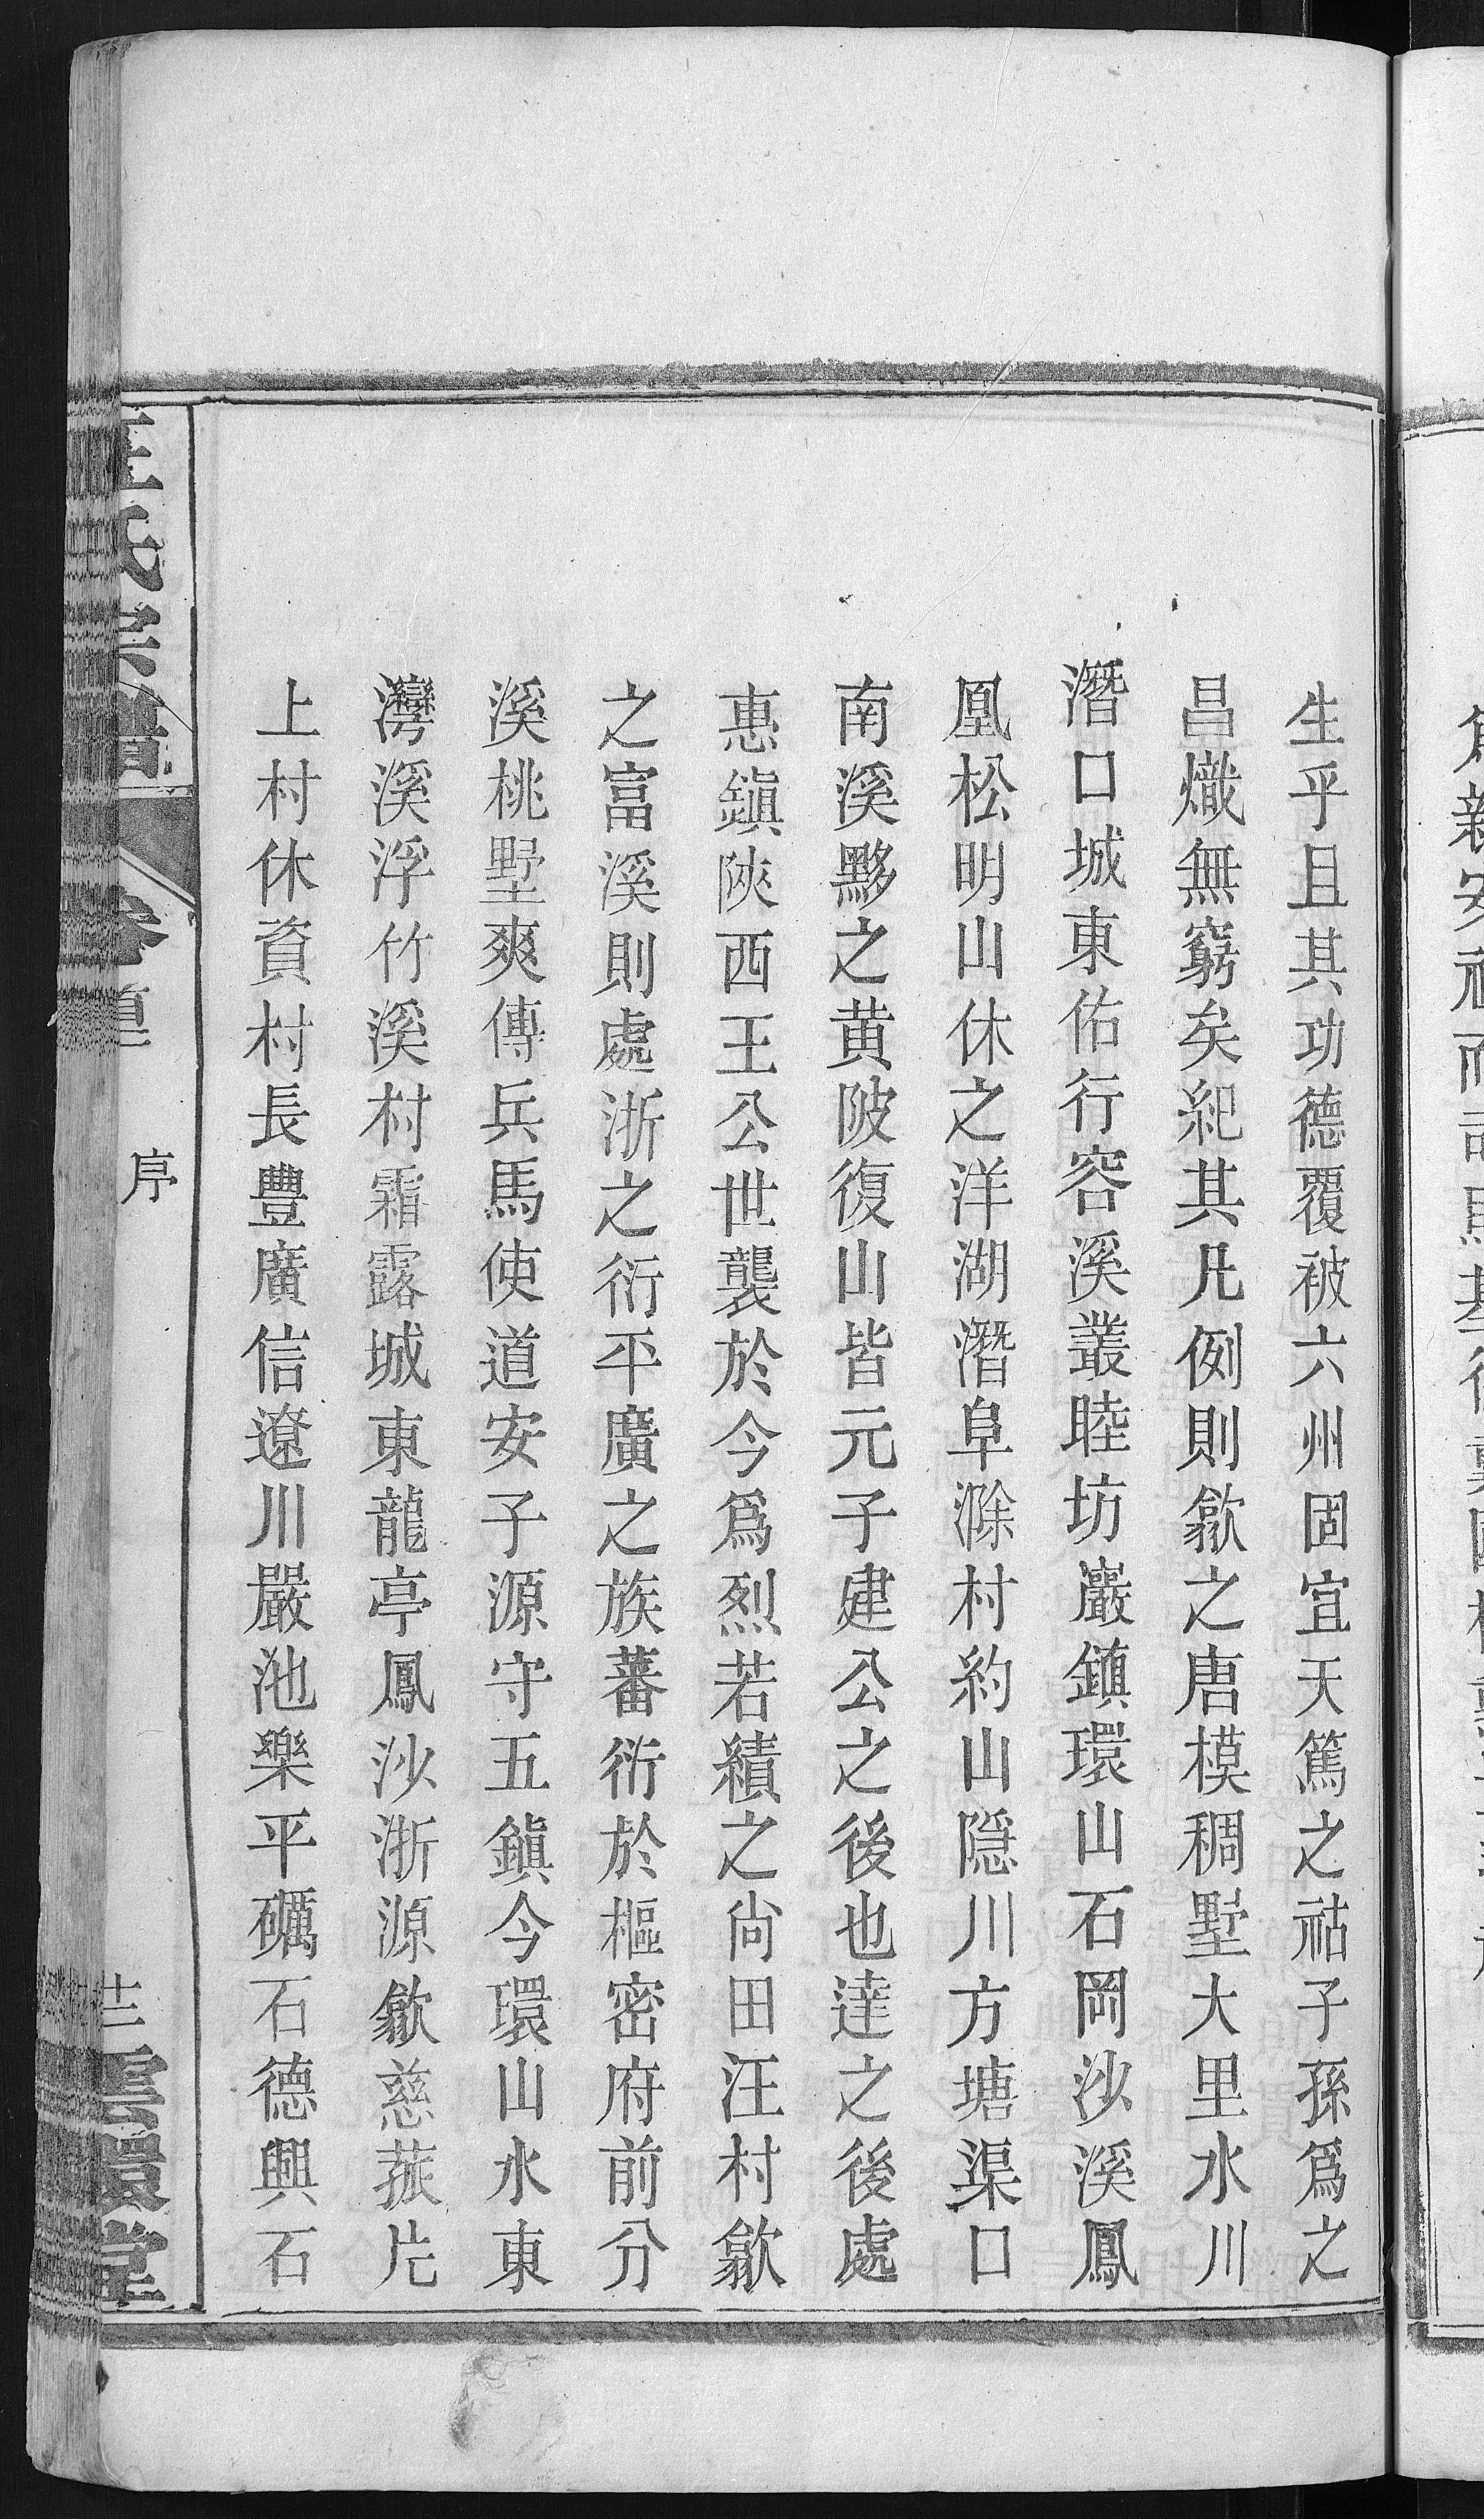 生乎且其功德覆被六州固宜天篤之祜子孫爲之
昌熾無窮矣紀其凡例則歙之唐模稠墅大里水川
潛口城東佑行容溪叢睦坊巖鎮環山石岡沙溪鳳
凰松明山休之洋湖潛阜滁村約山隱川方塘渠口
南溪黟之黄陂復山皆元子建公之後也達之後處
惠鎭陝西王公世襲於今爲烈若績之尙田汪村歙
之富溪則處浙之衍平廣之族蕃衍於樞密府前分
溪桃墅爽傳兵馬使道安子源守五鎭今環山水東
灣溪浮竹溪村霜露城東龍亭鳳沙浙源歙慈菰片
上村休資村長豐廣信遼川嚴池樂平礪石德興石
汪氏宗譜
卷首
序
十二
雲環堂